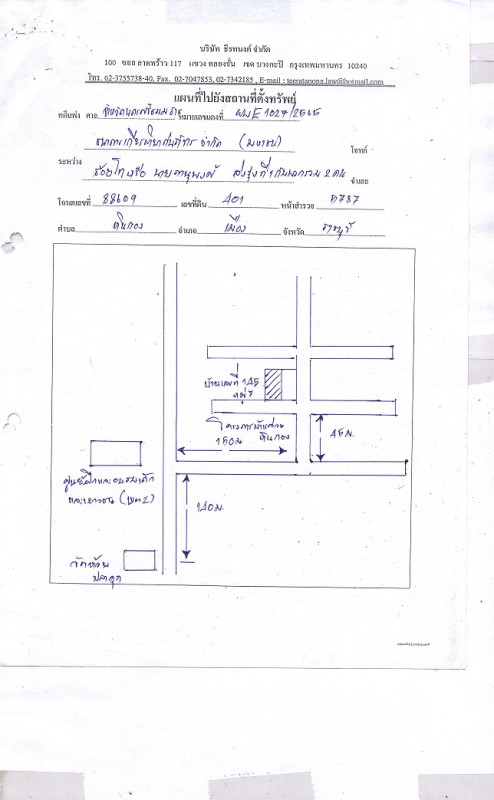 บริษัท ธีรทนงค์ จำกัด
100 ซอย ลาดพร้าว 117 แขวง คลองจั่น เขต บางกะปิ กรุงเทพมหานคร 10240
โทร. 02-3755738-40, Fax. 02-7047853, 02-7342185 , E-mail : teeratanong.law@hotmail.com
แผนที่ไปยังสถานที่ตั้งทรัพย์
คดีแพ่ง ศาล หมายเลขแดงที่ ผบE 1027/2565
ธนาคารเกียรตินาคินภัทร จำกัด (มหาชน) โจทก์
ระหว่าง
ร้อยโทหรือ นายภาณุพงศ์ ที่1 กับพวกรวม 2 คน
จำเลย
โฉนดเลขที่ 88609 เลขที่ดิน 401 หน้าสำรวจ 8737
ตำบล หินกอง อำเภอ เมือง จังหวัด ราชบุรี
บ้านเลขที่ 145
หมู่ 7
โครงการบ้านสวย
หินกอง
150ม
45ม.
ศูนย์ฝึกและอบรมเด็ก
และเยาวชน (เขต2)
140ม.
วัดห้วย
ปลาดุก